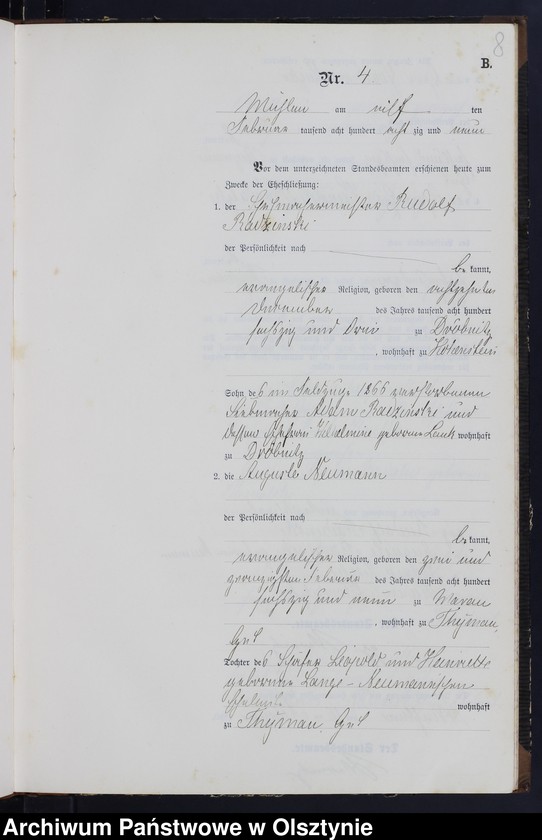 8
B.
Nr. 4
Mühlen am elf ten
Februar tausend acht hundert acht zig und neun
Vor dem unterzeichneten Standesbeamten erschienen heute zum
Zwecke der Eheschließung:
1. der Rudolf
Radzinski
der Persönlichkeit nach
be kannt,
evangelischer Religion, geboren den achtzehnten
Dezember des Jahres tausend acht hundert
sechszig und drei zu Dröbnitz
, wohnhaft zu Hohenstein
Sohn des im Feldzuge 1866 verstorbenen
Adam Radzinski und
dessen Ehefrau geborene Lauk wohnhaft
zu Dröbnitz
2. die Auguste Neumann
der Persönlichkeit nach
be kannt,
evangelischer Religion, geboren den zwei und
zwanzigsten Februar des Jahres tausend acht hundert
sechszig und neun zu
, wohnhaft zu Thymau,
Gut
Tochter des Schäfer Leopold und Henriette
geborene Lange - Neumannschen
Eheleute wohnhaft
zu Thymau, Gut
Archiwum Państwowe w Olsztynie